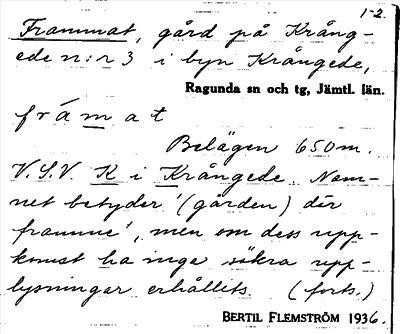 1-2.
Frammat, gård på Krång-
ede n:r 3 i byn Krångede,
Ragunda sn och tg, Jämtl. län.
frámat
Belägen 650m.
V.S.V. K i Krångede. Nam-
net betyder '(gården) där
framme', men om dess upp-
komst ha inga säkra upp-
lysningar erhållits. (forts.)
BERTIL FLEMSTRÖM 1936.